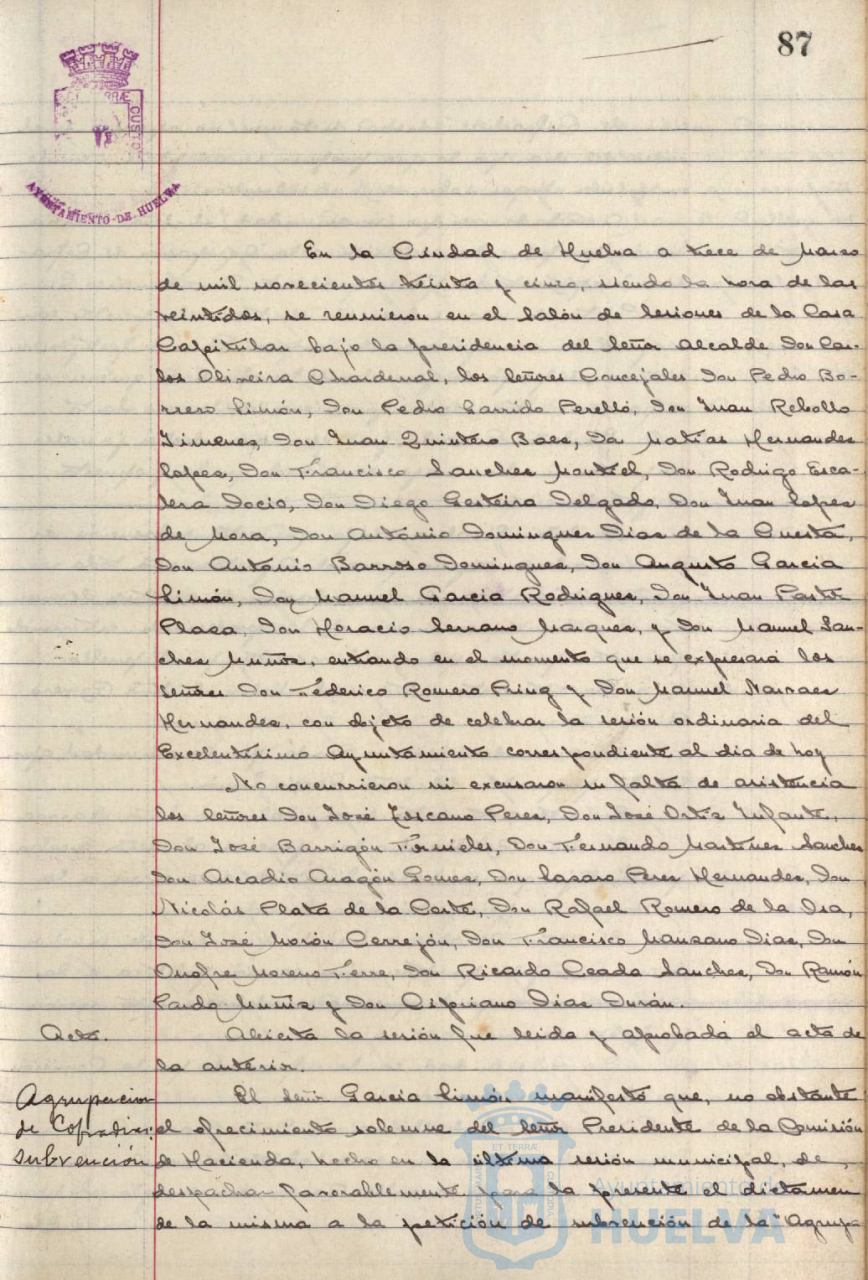 87
AYUNTAMIENTO-DE-HUELVA
En la Ciudad de Huelva a trece de Marzo
de mil novecientos treinta y cinco, siendo la hora de las
veintidos, se reunieron en el Salón de Sesiones de la Casa
Capitular bajo la presidencia del Señor Alcalde Don Car-
los Oliveira Chardenal, los Señores Concejales Don Pedro Bo-
rrero Limón, Don Pedro Garrido Perelló, Don Juan Rebollo
Jimenes, Don Juan Quintero Baes, Don Matías Hernandes
Lopes, Don Francisco Sanches Montiel, Don Rodrigo Esca-
lera Socio, Don Diego Gesteira Delgado, Don Juan Lopes
de Mora, Don António Domingues Dias de la Cuesta,
Don António Barroso Domingues, Don Augusto Garcia
Limón, Don Manuel Garcia Rodrigues, Don Juan Pastor
Plasa, Don Horacio Serrano Marques, y Don Manuel San-
ches Muños, entrando en el momento que se expresará los
Señores Don Féderico Romero Pring y Don Manuel Narvaes
Hernandes, con objeto de celebrar la sesión ordinaria del
Excelentísimo Ayuntamiento correspondiente al dia de hoy
No concurrieron ni excusaron su falta de asistencia
los Señores Don José Escano Peres, Don José Ortiz Infante,
Don José Barrigón Fornieles, Don Fernando Martines Sanches
Don Arcadio Aragón Gomes, Don Lasaro Peres Hernandes, Don
Nicolás Plata de la Corte, Don Rafael Romero de la Osa,
Don José Morón Cerrejón, Don Francisco Mansano Dias, Don
Onofre Moreno Ferre, Don Ricardo Ceada Sanches, Don Ramón
Pardo Muñiz y Don Cipriano Dias Durán.
Acta. Abierta la sesión fue leida y aprobada el acta de
la anterior.
Agrupacion El Señor Garcia Limón manifestó que, no obstante
de Cofradias: el ofrecimiento solemne del Señor Presidente de la Comisión
subvención de Hacienda, hecho en la última sesión municipal, de
despachar favorablemente para la presente el dictamen
de la misma a la petición de subvención de la "Agrupa
Ayuntamiento de
HUELVA